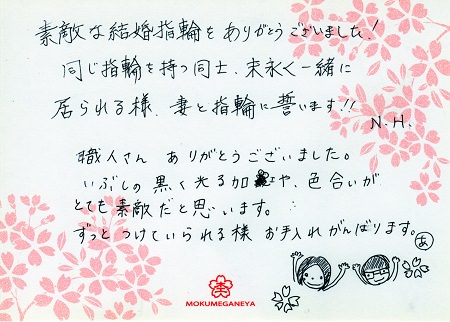 素敵な結婚指輪をありがとうございました!
同じ指輪を持つ同士、末永く一緒に
居られる様、妻と指輪に誓います!!
N.H.
職人さん ありがとうございました。
いぶしの黒く光る加工や、色合いが
とても素敵だと思います。
ずっとつけていられる様 お手入れがんばります。
あ
MOKUMEGANEYA